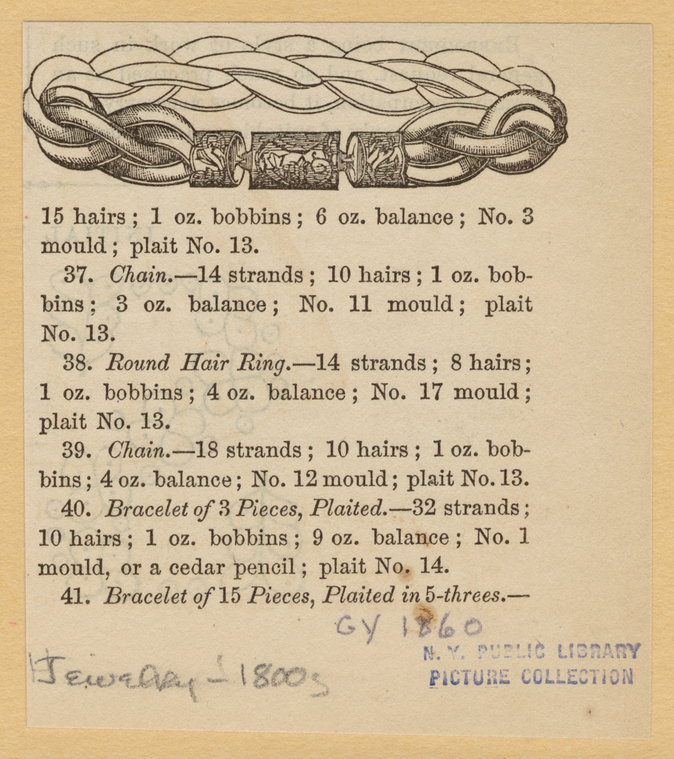 15 hairs; 1 oz. bobbins; 6 oz. balance; No. 3
mould; plait No. 13.
37. Chain.—14 strands; 10 hairs; 1 oz. bob-
bins; 3 oz. balance; No. 11 mould; plait
No. 13.
38. Round Hair Ring.—14 strands; 8 hairs;
1 oz. bobbins; 4 oz. balance; No. 17 mould;
plait No. 13.
39. Chain.—18 strands; 10 hairs; 1 oz. bob-
bins; 4 oz. balance; No. 12 mould; plait No. 13.
40. Bracelet of 3 Pieces, Plaited.—32 strands;
10 hairs; 1 oz. bobbins; 9 oz. balance; No. 1
mould, or a cedar pencil; plait No. 14.
41. Bracelet of 15 Pieces, Plaited in 5-threes.—
GY 1860
N. Y. PUBLIC LIBRARY
PICTURE COLLECTION
Jewelry - 1800s